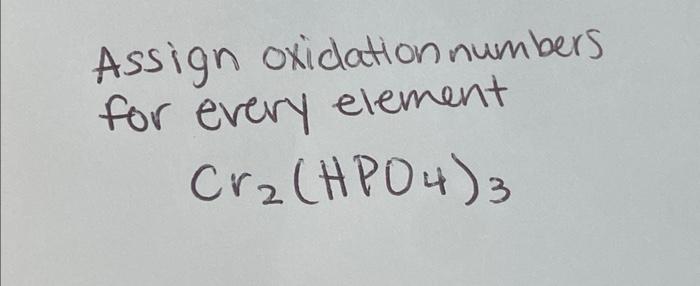 Assign oxidation numbers
for every element
Cr₂(HPO4)₃